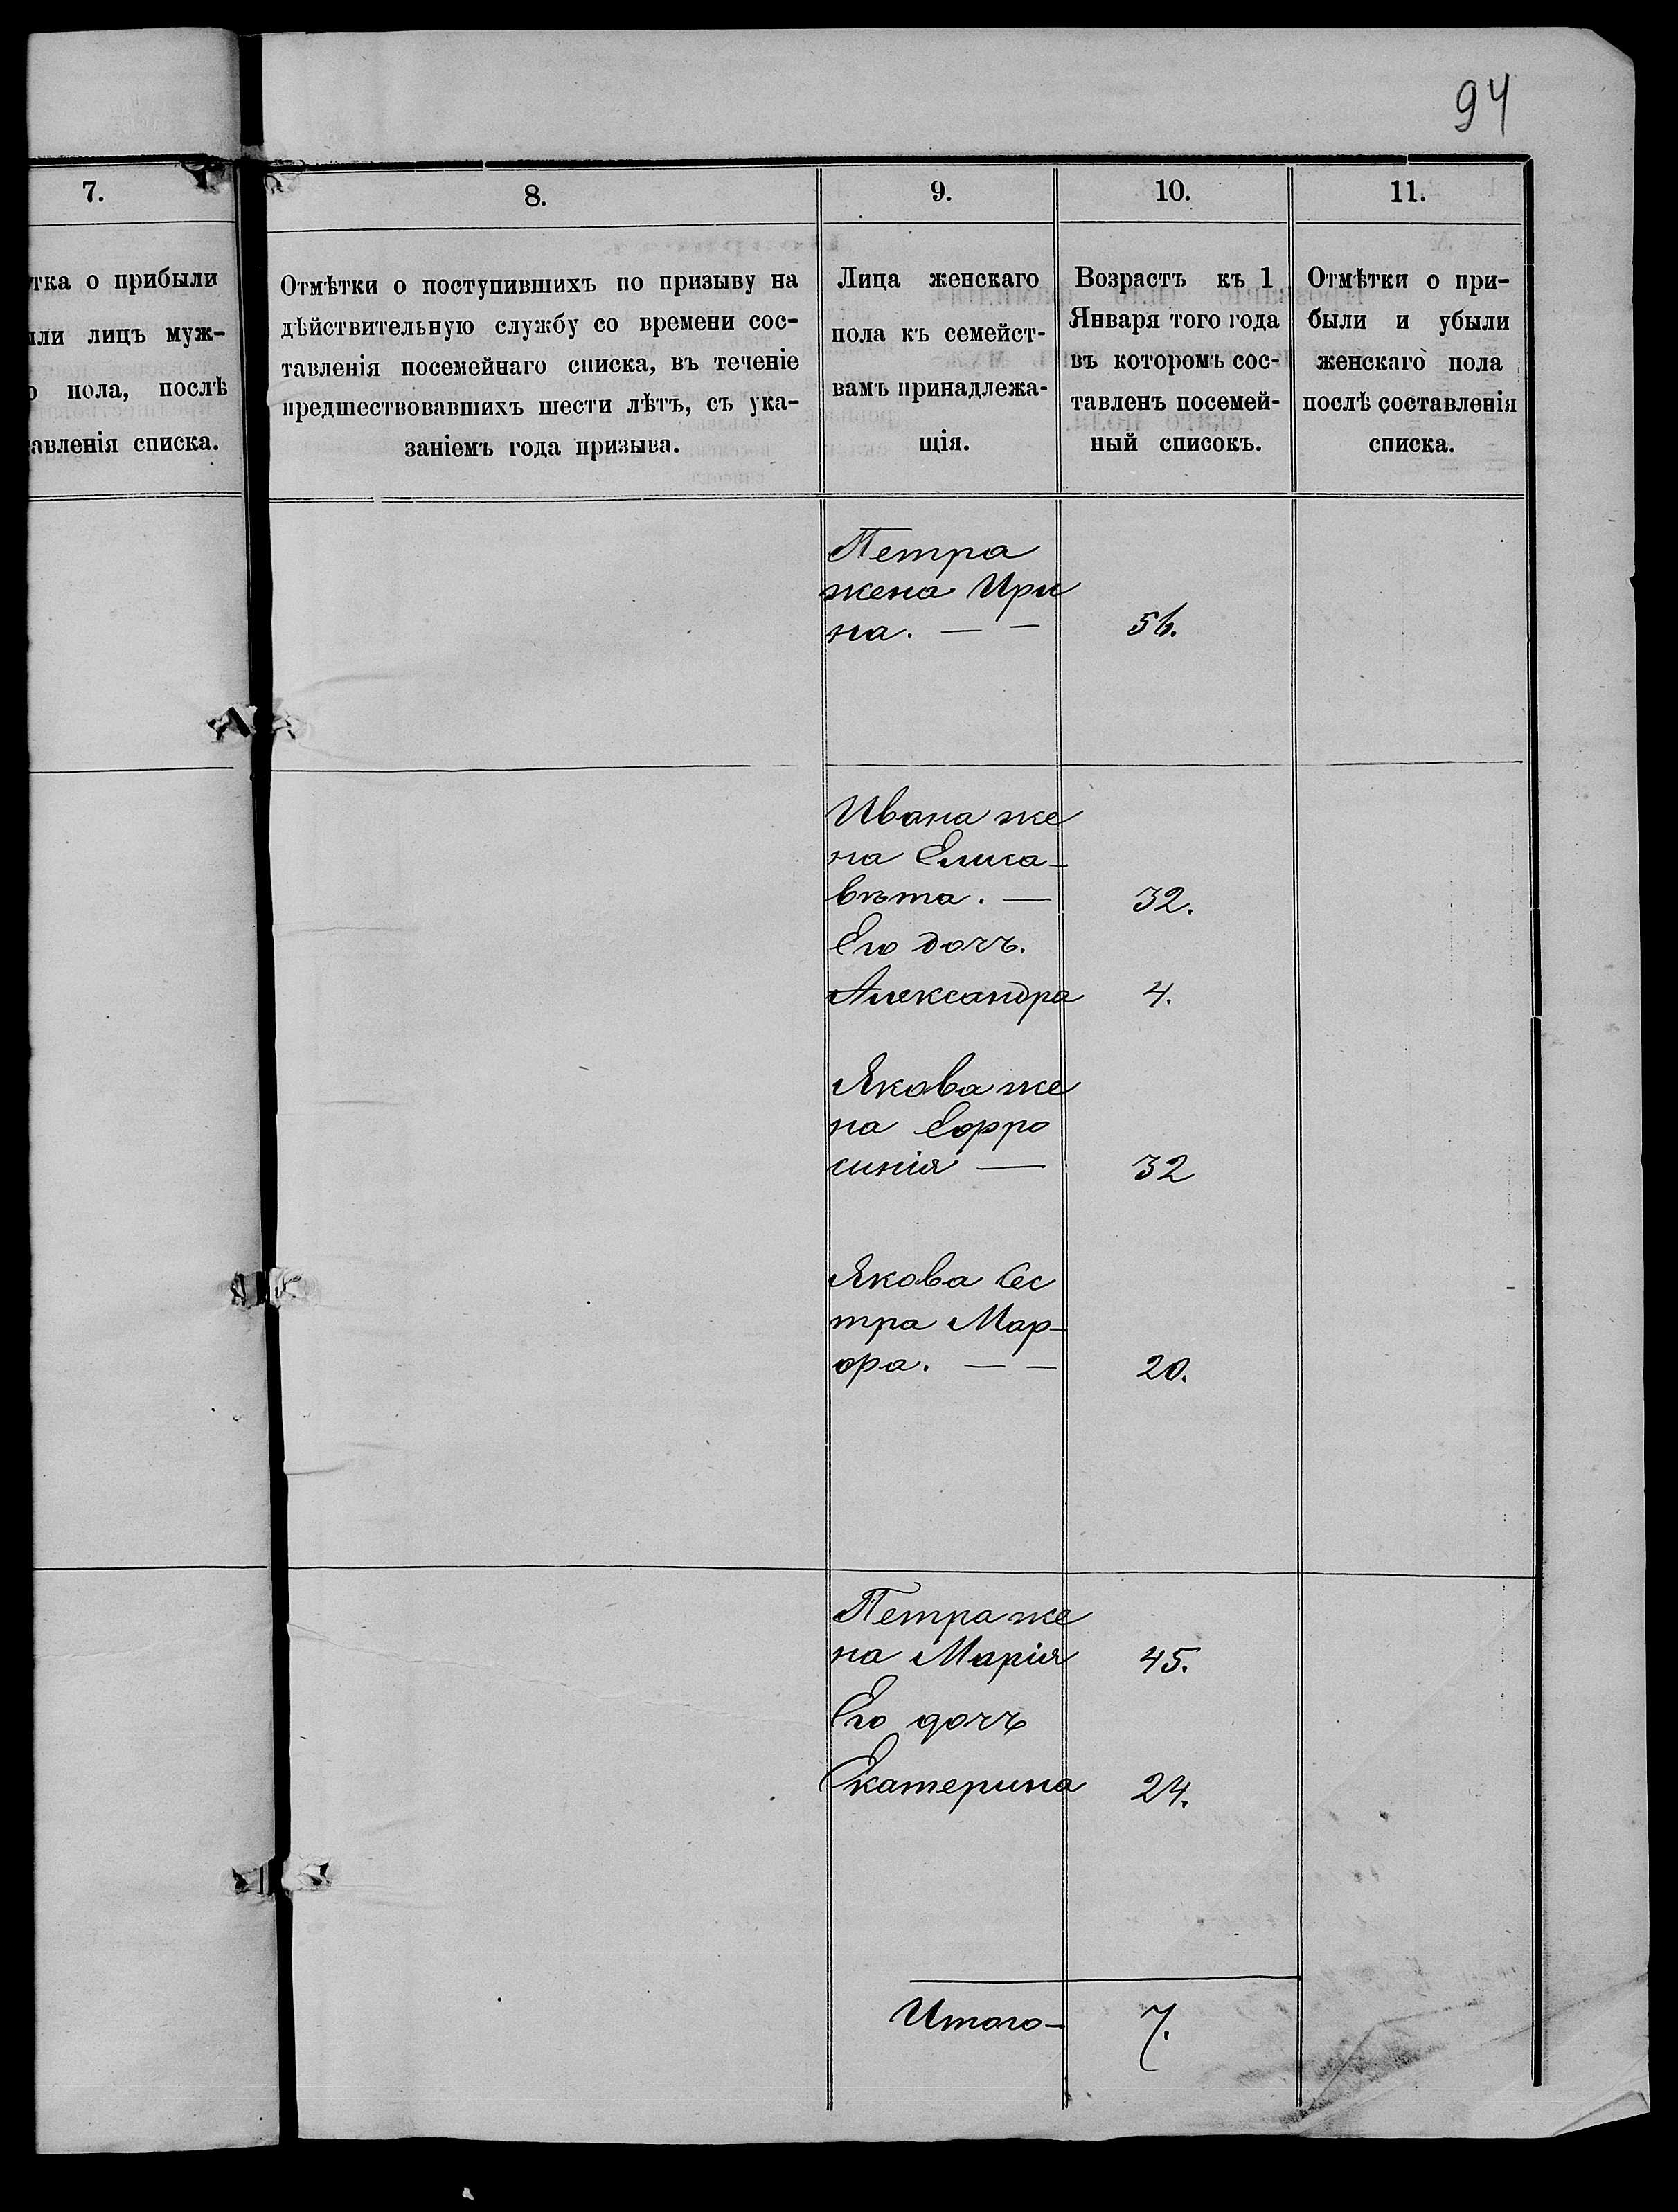 94
7.
тка о прибыли
ли лицъ муж-
пола, послѣ
авленія списка.
8.
Отмѣтки о поступившихъ по призыву на
дѣйствительную службу со времени сос-
тавленія посемейнаго списка, въ теченіе
предшествовавшихъ шести лѣтъ, съ ука-
заніемъ года призыва.
9.
Лица женскаго
пола къ семейст-
вамъ принадлежа-
щія.
10.
Возрастъ къ 1
Января того года
въ которомъ сос-
тавленъ посемей-
ный списокъ.
11.
Отмѣтки о при-
были и убыли
женскаго пола
послѣ составленія
списка.
Петра
жена Ири
на. — — 56.
Ивана же
на Елиса-
вѣта. — 32.
Его дочь.
Александра 4.
Якова же
на Ефро
синія — 32
Якова Сес
тра Мар-
фа. — — 20.
Петра же
на Марія 45.
Его дочь
Екатерина 24.
Итого- 7.